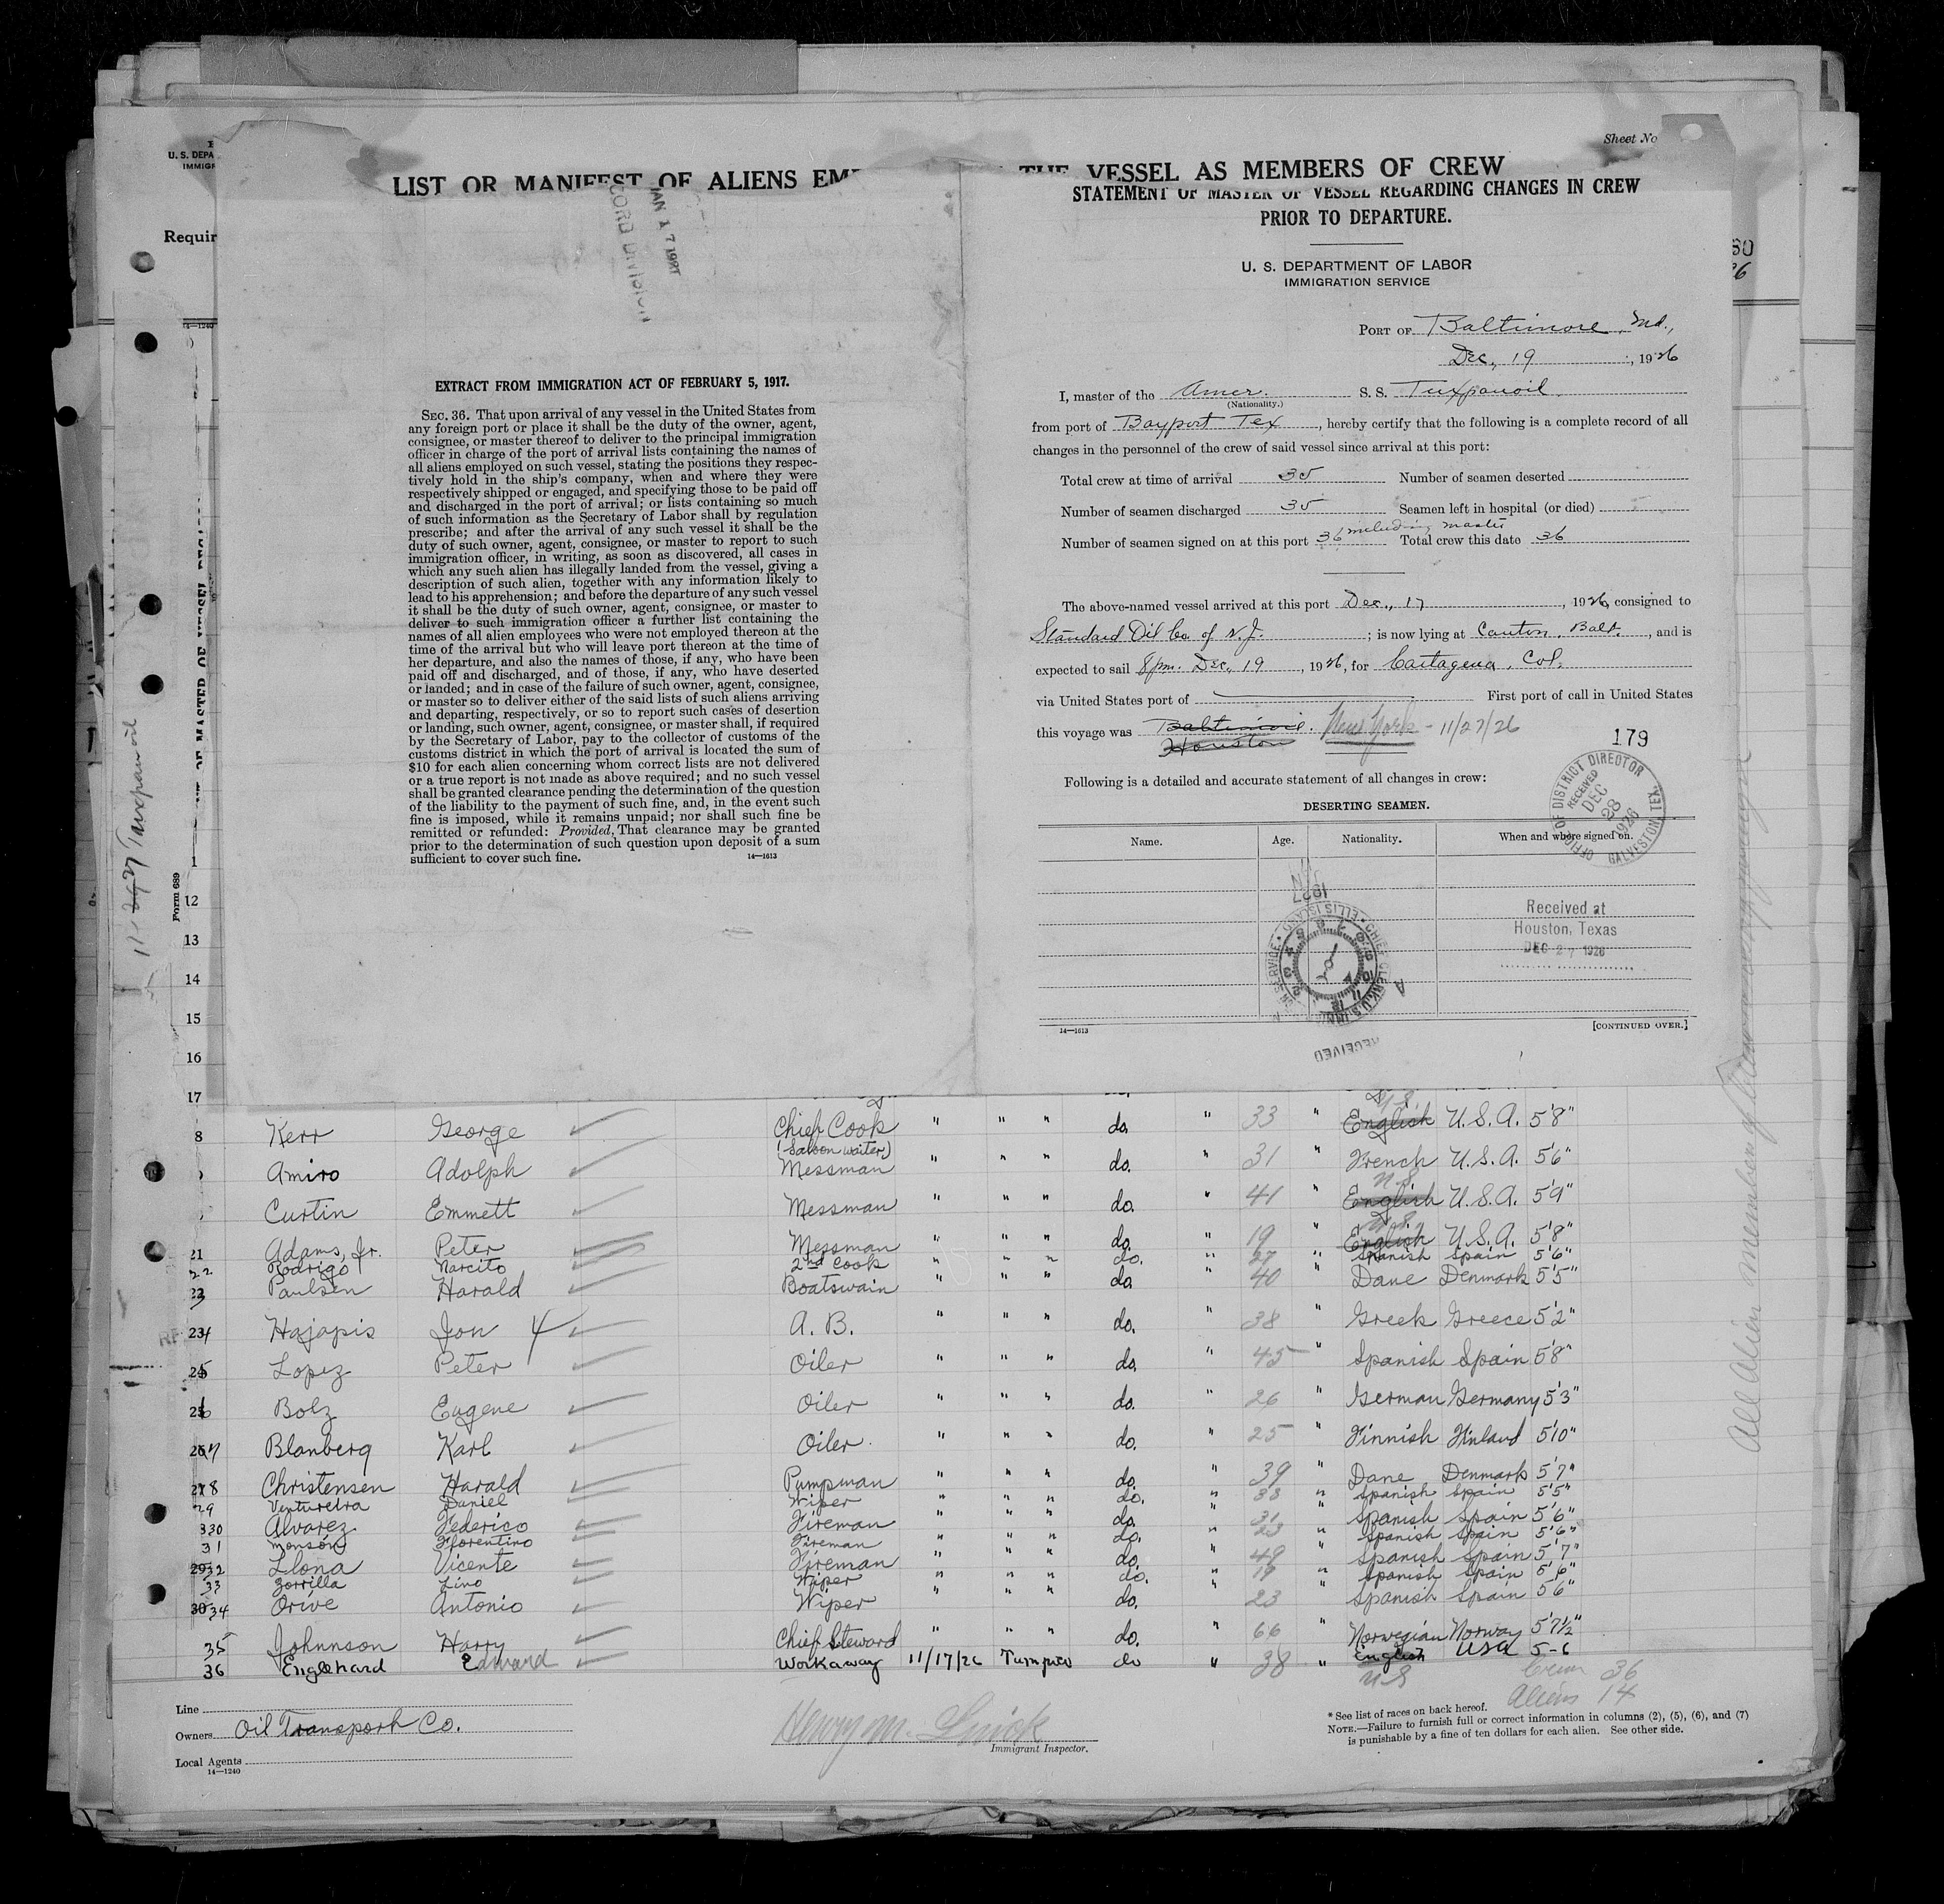 Sheet No
U. S. DEPA
IMMIGR
LIST OR MANIFEST OF ALIENS EM
THE VESSEL AS MEMBERS OF CREW
Requir
14—1240
JAN 17 1927
RECORD DIVISION
EXTRACT FROM IMMIGRATION ACT OF FEBRUARY 5, 1917.
SEC. 36. That upon arrival of any vessel in the United States from
any foreign port or place it shall be the duty of the owner, agent,
consignee, or master thereof to deliver to the principal immigration
officer in charge of the port of arrival lists containing the names of
all aliens employed on such vessel, stating the positions they respec-
tively hold in the ship's company, when and where they were
respectively shipped or engaged, and specifying those to be paid off
and discharged in the port of arrival; or lists containing so much
of such information as the Secretary of Labor shall by regulation
prescribe; and after the arrival of any such vessel it shall be the
duty of such owner, agent, consignee, or master to report to such
immigration officer, in writing, as soon as discovered, all cases in
which any such alien has illegally landed from the vessel, giving a
description of such alien, together with any information likely to
lead to his apprehension; and before the departure of any such vessel
it shall be the duty of such owner, agent, consignee, or master to
deliver to such immigration officer a further list containing the
names of all alien employees who were not employed thereon at the
time of the arrival but who will leave port thereon at the time of
her departure, and also the names of those, if any, who have been
paid off and discharged, and of those, if any, who have deserted
or landed; and in case of the failure of such owner, agent, consignee,
or master so to deliver either of the said lists of such aliens arriving
and departing, respectively, or so to report such cases of desertion
or landing, such owner, agent, consignee, or master shall, if required
by the Secretary of Labor, pay to the collector of customs of the
customs district in which the port of arrival is located the sum of
$10 for each alien concerning whom correct lists are not delivered
or a true report is not made as above required; and no such vessel
shall be granted clearance pending the determination of the question
of the liability to the payment of such fine, and, in the event such
fine is imposed, while it remains unpaid; nor shall such fine be
remitted or refunded: Provided, That clearance may be granted
prior to the determination of such question upon deposit of a sum
sufficient to cover such fine.
14—1613
STATEMENT OF MASTER OF VESSEL REGARDING CHANGES IN CREW
PRIOR TO DEPARTURE.
U. S. DEPARTMENT OF LABOR
IMMIGRATION SERVICE
PORT OF Baltimore, Md.,
Dec., 19, 1926
I, master of the Amer. S. S. Tuxpanoil
(Nationality.)
from port of Bayport Tex, hereby certify that the following is a complete record of all
changes in the personnel of the crew of said vessel since arrival at this port:
Total crew at time of arrival 35 Number of seamen deserted
Number of seamen discharged 35 Seamen left in hospital (or died)
Number of seamen signed on at this port 36 including master Total crew this date 36
The above-named vessel arrived at this port Dec., 17, 1926, consigned to
Standard Oil Co of N. J.; is now lying at Canton, Balt., and is
expected to sail 8 pm. Dec, 19, 1926, for Cartagena, Col.
via United States port of First port of call in United States
this voyage was Baltimore. New York - 11/27/26
Houston
179
Following is a detailed and accurate statement of all changes in crew:
DESERTING SEAMEN.
Name. Age. Nationality. When and where signed on.
OFFICE OF DISTRICT DIRECTOR
RECEIVED
DEC 28 1926
GALVESTON, TEX.
Received at
Houston, Texas
DEC 27 1926
RECEIVED
14—1613
[CONTINUED OVER.]
Form 689
11-27 Tuxpanoil
All alien members of
1
12
13
14
15
16
17
8 Kerr George Chief Cook " " " do. " 33 " English U.S. U.S.A. 5'8"
Amiro Adolph (Saloon waiter) Messman " " " do. " 31 " French U.S.A. 5'6"
Curtin Emmett Messman " " " do. " 41 " English U.S. U.S.A. 5'9"
21 Adams, Jr. Peter Messman " " " do. " 19 " English U.S. U.S.A. 5'8"
22 Rodrigo Narcito 2nd Cook " " " do. " 27 " Spanish Spain 5'6"
23 Paulsen Harald Boatswain " " " do. " 40 " Dane Denmark 5'5"
24 Hajapis Jon A. B. " " " do. " 38 " Greek Greece 5'2"
25 Lopez Peter Oiler " " " do. " 45 " Spanish Spain 5'8"
26 Bolz Eugene Oiler " " " do. " 26 " German Germany 5'3"
27 Blanberg Karl Oiler " " " do. " 25 " Finnish Finland 5'10"
28 Christensen Harald Pumpman " " " do. " 39 " Dane Denmark 5'7"
29 Daniel Wiper " " " do. " 33 " Spanish Spain 5'5"
30 Alvarez Federico Fireman " " " do. " 31 " Spanish Spain 5'6"
31 Monson Florentino Fireman " " " do. " 23 " Spanish Spain 5'6"
32 Llona Vicente Fireman " " " do. " 49 " Spanish Spain 5'7"
33 Zorrilla Lino Wiper " " " do. " 19 " Spanish Spain 5'6"
34 Orive Antonio Wiper " " " do. " 23 " Spanish Spain 5'6"
35 Johnnson Harry Chief Steward " " " do. " 66 " Norwegian Norway 5'7½"
36 Englehard Edward Workaway 11/17/26 do " 38 " English U S USA 5-6
Crew 36
Aliens 14
Line
Owners Oil Transport Co.
Local Agents
14—1240
Henry M.
Immigrant Inspector.
* See list of races on back hereof.
NOTE.—Failure to furnish full or correct information in columns (2), (5), (6), and (7)
is punishable by a fine of ten dollars for each alien. See other side.